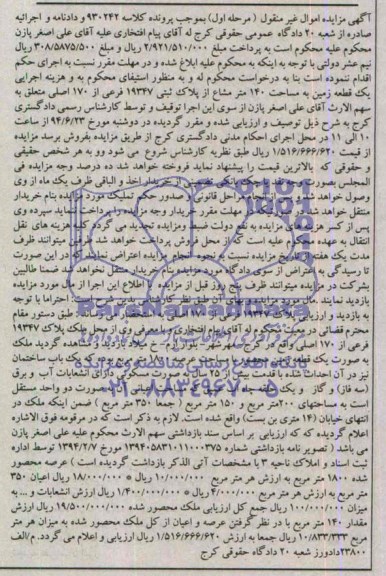 آگهی مزایده اموال غیر منقول ( مرحله اول) بموجب پرونده کلاسه ۹۳۰۲۴۲ و دادنامه و اجرائیه
صادره از شعبه ۲۰ دادگاه عمومی حقوقی کرج له آقای پیام افتخاری علیه آقای علی اصغر یازن
محکوم علیه محکوم است به پرداخت مبلغ ۲/۹۲۱/۵۱۰/۰۰۰ ریال و مبلغ ۳۰۸/۵۸۷۵/۵۰۰ ریال
نیم عشر دولتی با توجه به اینکه به محکوم علیه ابلاغ شده و در مهلت مقرر نسبت به اجرای حکم
اقدام ننموده است بنا به درخواست محکوم له و به منظور استیفای محکوم به و هزینه اجرایی
یک قطعه زمین به مساحت ۱۴۰ متر مشاع از پلاک ثبتی ۱۹۳۴۷ فرعی از ۱۷۰ اصلی متعلق به
سهم الارث آقای علی اصغر یازن از سوی این اجرا توقیف و توسط کارشناس رسمی دادگستری
کرج به شرح ذیل توصیف و ارزیابی شده و مقرر گردیده در دوشنبه مورخ ۹۴/۶/۲۳ از ساعت
۱۰ الی ۱۱ در محل اجرای احکام مدنی دادگستری کرج از طریق مزایده بفروش برسد مزایده
از قیمت ۱/۵۱۶/۶۶۶/۶۲۰ ریال طبق نظریه کارشناس شروع می شود و به هر شخص حقیقی
و حقوقی که بالاترین قیمت را پیشنهاد نماید فروخته خواهد شد ده درصد وجه مزایده فی
المجلس بصورت از خریدار اخذ و الباقی ظرف یک ماه از وی
وصول خواهد مراحل قانونی و صدور حکم تملیک مورد مزایده بنام خریدار
منتقل خواهد شد در مهلت مقرر خریدار وجه مزایده را پرداخت ننماید سپرده وی
پس از کسر هزینه های مزایده به نفع دولت ضبط و مزایده تجدید می گردد کلیه هزینه های نقل
انتقال به عهده علیه است که از محل فروش پرداخت خواهد شد طرفین میتوانند ظرف
مدت یک هفته از تاریخ مزایده نسبت به نحوه انجام مزایده اعتراض نمایند که در این صورت
تا رسیدگی به اعتراض از سوی دادگاه مورد مزایده بنام خریدار منتقل نخواهد شد ضمنا طالبین
بشرکت در مزایده میتوانند ظرف پنج روز قبل از مزایده با اطلاع این اجرا از مال مورد مزایده
بازدید نمایند مال مورد مزایده آن طبق نظر کارشناس بدین شرح است: احتراما با توجه
به بازدید و ارزیابی پلاک ۱۹۳۴۷ طبق دستور مقام
محترم قضائی در معیت محکوم له آقای پیام افتخاری و با معرفی وی از محل ملک پلاک ۱۹۳۴۷
فرعی از ۱۷۰ اصلی واقع در کرج مشاهده گردید ملک
به صورت یک قطعه زمین محصور با مساحت عرصه ۱۸۰۰ متر مربع بوده که یک باب ساختمان
نیز در آن احداث شده با قدمت بیش از ۲۵ سال مسکونی دارای انشعابات آب و برق
(سه فاز) و گاز و یک حلقه چاه بصورت دو واحد مستقل
است به مساحتهای ۲۰۰ متر مربع و ۱۵۰ متر مربع ( جمعا ۳۵۰ متر مربع ) ضمن اینکه ملک در
انتهای خیابان (۱۴ متری بن بست) واقع شده است. لازم به ذکر است که در مرقومه فوق الاشاره
اعلام گردیده که که ارزیابی بر اساس سند بازداشتی سهم الارث محکوم علیه علی اصغر یازن
می باشد ( تصویر نامه بازداشتی شماره ۱۳۹۴۰۵۸۳۱۰۱۱۰۰۰۳۷۵ مورخ ۱۳۹۴/۲/۷ توسط اداره
ثبت اسناد و املاک ناحیه ۳ با مشخصات آتی الذکر بازداشت گردیده است ) عرصه محصور
شده ۱۸۰۰ متر مربع به ارزش هر متر مربع ۱۰/۰۰۰/۰۰۰ ریال * ۱۸/۰۰۰/۰۰۰ ریال اعیان ۳۵۰
متر مربع به ارزش هر متر مربع ۴/۰۰۰/۰۰۰ ریال * ۱/۴۰۰/۰۰۰/۰۰۰ ریال ارزش انشعابات و ... به
میزان ۱۰۰/۰۰۰/۰۰۰ ریال جمع کل ارزیابی ملک محصور شده ۱۹/۵۰۰/۰۰۰/۰۰۰ ریال ارزش
مقدار ۱۴۰ متر مربع با در نظر گرفتن عرصه و اعیان از کل ملک محصور شده به میزان هر متر
مربع ۱۰/۸۳۳/۳۳۳ ریال جمعا به ارزش ۱/۵۱۶/۶۶۶/۶۲۰ ریال ارزیابی و اعلام می گردد. م/الف
۲۳۸۰۰ دادورز شعبه ۲۰ دادگاه حقوقی کرج
ParsNamadData
پایگاه اطلاع رسانی مناقصه و مزایده
۰۲۱-۸۸۳۴۹۶۷۰-۵